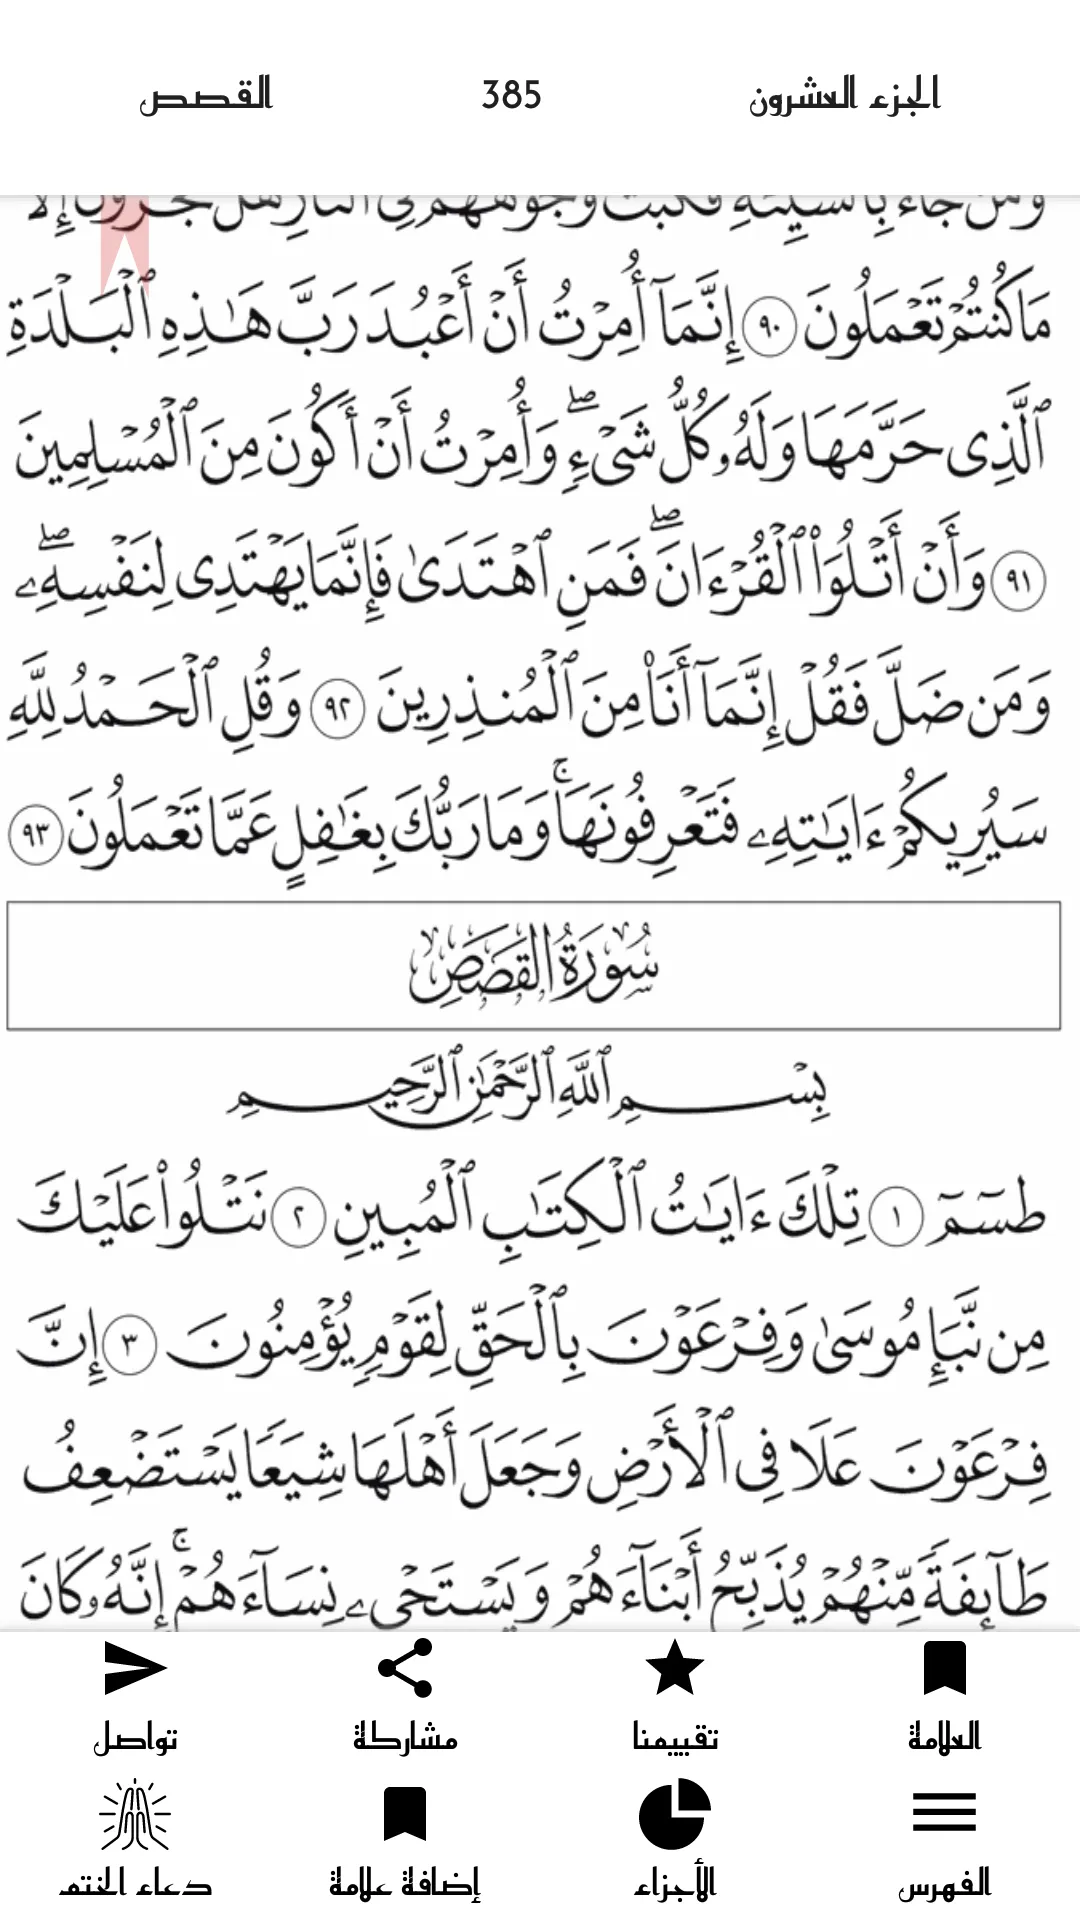 الجزء العشرون 385 القصص
وَمَن جَآءَ بِٱلسَّيِّئَةِ فَكُبَّتْ وُجُوهُهُمْ فِى ٱلنَّارِ هَلْ تُجْزَوْنَ إِلَّا
مَا كُنتُمْ تَعْمَلُونَ ٩٠ إِنَّمَآ أُمِرْتُ أَنْ أَعْبُدَ رَبَّ هَـٰذِهِ ٱلْبَلْدَةِ
ٱلَّذِى حَرَّمَهَا وَلَهُۥ كُلُّ شَىْءٍ ۖ وَأُمِرْتُ أَنْ أَكُونَ مِنَ ٱلْمُسْلِمِينَ
٩١ وَأَنْ أَتْلُوَا۟ ٱلْقُرْءَانَ ۖ فَمَنِ ٱهْتَدَىٰ فَإِنَّمَا يَهْتَدِى لِنَفْسِهِۦ ۖ
وَمَن ضَلَّ فَقُلْ إِنَّمَآ أَنَا۠ مِنَ ٱلْمُنذِرِينَ ٩٢ وَقُلِ ٱلْحَمْدُ لِلَّهِ
سَيُرِيكُمْ ءَايَـٰتِهِۦ فَتَعْرِفُونَهَا ۚ وَمَا رَبُّكَ بِغَـٰفِلٍ عَمَّا تَعْمَلُونَ ٩٣
سُورَةُ القَصَصِ
بِسْمِ ٱللَّهِ ٱلرَّحْمَـٰنِ ٱلرَّحِيمِ
طسٓمٓ ١ تِلْكَ ءَايَـٰتُ ٱلْكِتَـٰبِ ٱلْمُبِينِ ٢ نَتْلُوا۟ عَلَيْكَ
مِن نَّبَإِ مُوسَىٰ وَفِرْعَوْنَ بِٱلْحَقِّ لِقَوْمٍ يُؤْمِنُونَ ٣ إِنَّ
فِرْعَوْنَ عَلَا فِى ٱلْأَرْضِ وَجَعَلَ أَهْلَهَا شِيَعًا يَسْتَضْعِفُ
طَآئِفَةً مِّنْهُمْ يُذَبِّحُ أَبْنَآءَهُمْ وَيَسْتَحْىِۦ نِسَآءَهُمْ ۚ إِنَّهُۥ كَانَ
العلامة تقييمنا مشاركة تواصل
الفهرس الأجزاء إضافة علامة دعاء الختم